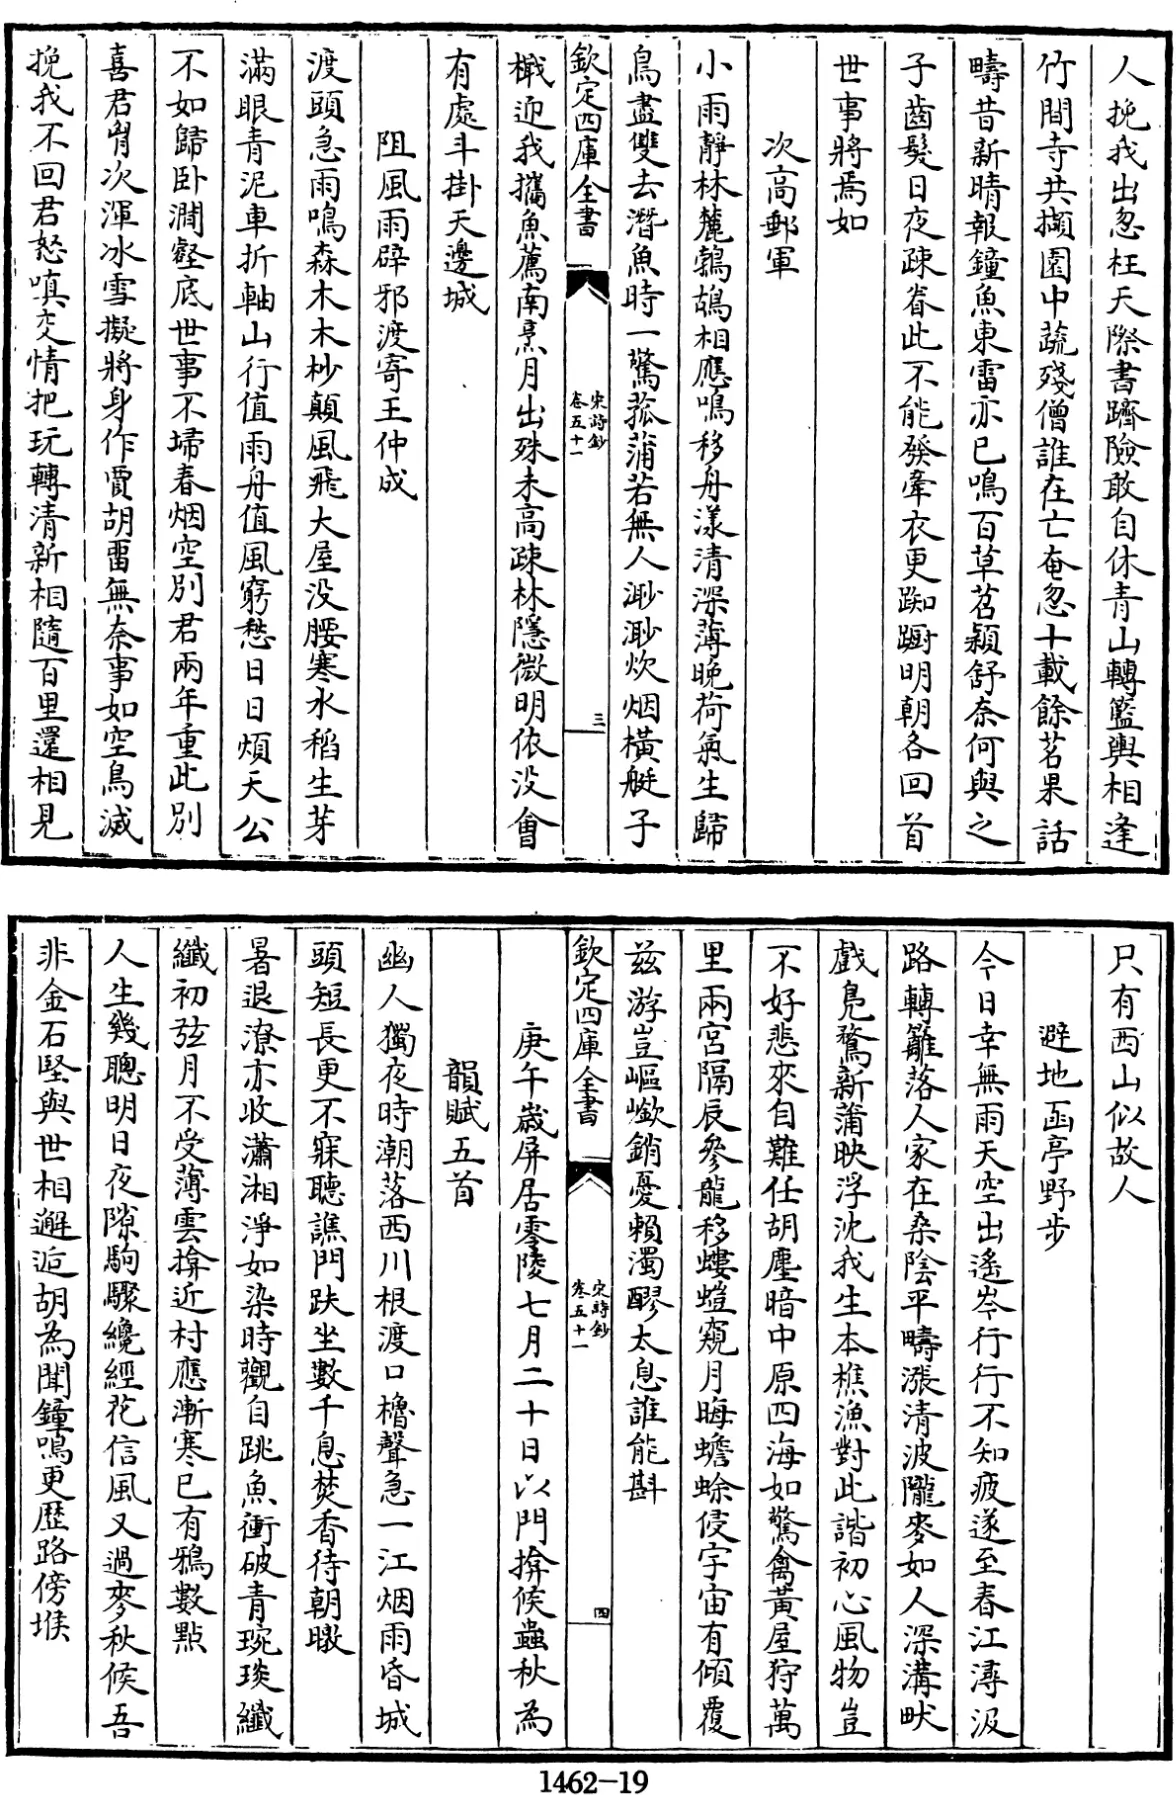 人挽我出忽枉天際書躋險敢自休青山轉籃輿相逢
竹間寺共擷園中蔬殘僧誰在亡奄忽十載餘茗果話
疇昔新晴報鐘魚東雷亦已鳴百草苕穎舒奈何與之
子齒髮日夜疎眷此不能發牽衣更踟蹰明朝各回首
世事將焉如
次高郵軍
小雨靜林麓鶉鴣相應鳴移舟漾清深薄晚荷氣生歸
鳥盡雙去潛魚時一驚菰蒲若無人渺渺炊烟橫艇子
欽定四庫全書
宋詩鈔
卷五十一
三
檝迎我攜魚薦南烹月出殊未高疎林隱微明依没會
有處斗掛天邊城
阻風雨辟邪渡寄王仲成
渡頭急雨鳴森木木杪顛風飛大屋没腰寒水稻生芽
滿眼青泥車折軸山行值雨舟值風窮愁日日煩天公
不如歸卧澗壑底世事不埽春烟空別君兩年重此別
喜君胷次渾冰雪擬將身作賈胡留無奈事如空鳥滅
挽我不回君怒嗔交情把玩轉清新相隨百里還相見
只有西山似故人
避地函亭野步
今日幸無雨天空出遙岑行行不知疲遂至春江潯汲
路轉籬落人家在桑陰平疇漲清波隴麥如人深溝畎
戲鳧鶩新蒲映浮沈我生本樵漁對此諧初心風物豈
不好悲來自難任胡塵暗中原四海如驚禽黃屋狩萬
里兩宮隔辰參龍移螻螘窺月晦蟾蜍侵宇宙有傾覆
兹游豈嶇嶔銷憂賴濁醪太息誰能斟
欽定四庫全書
宋詩鈔
卷五十一
四
庚午歲屏居零陵七月二十日以門揜候蟲秋為
韻賦五首
幽人獨夜時潮落西川根渡口櫓聲急一江烟雨昏城
頭短長更不寐聽譙門趺坐數千息焚香待朝暾
暑退潦亦收瀟湘淨如染時觀自跳魚衝破青琬琰纖
纖初弦月不受薄雲揜近村應漸寒已有鴉數點
人生幾聰明日夜隙駒驟纔經花信風又過麥秋候吾
非金石堅與世相邂逅胡為聞鐘鳴更歷路傍堠
1462-19